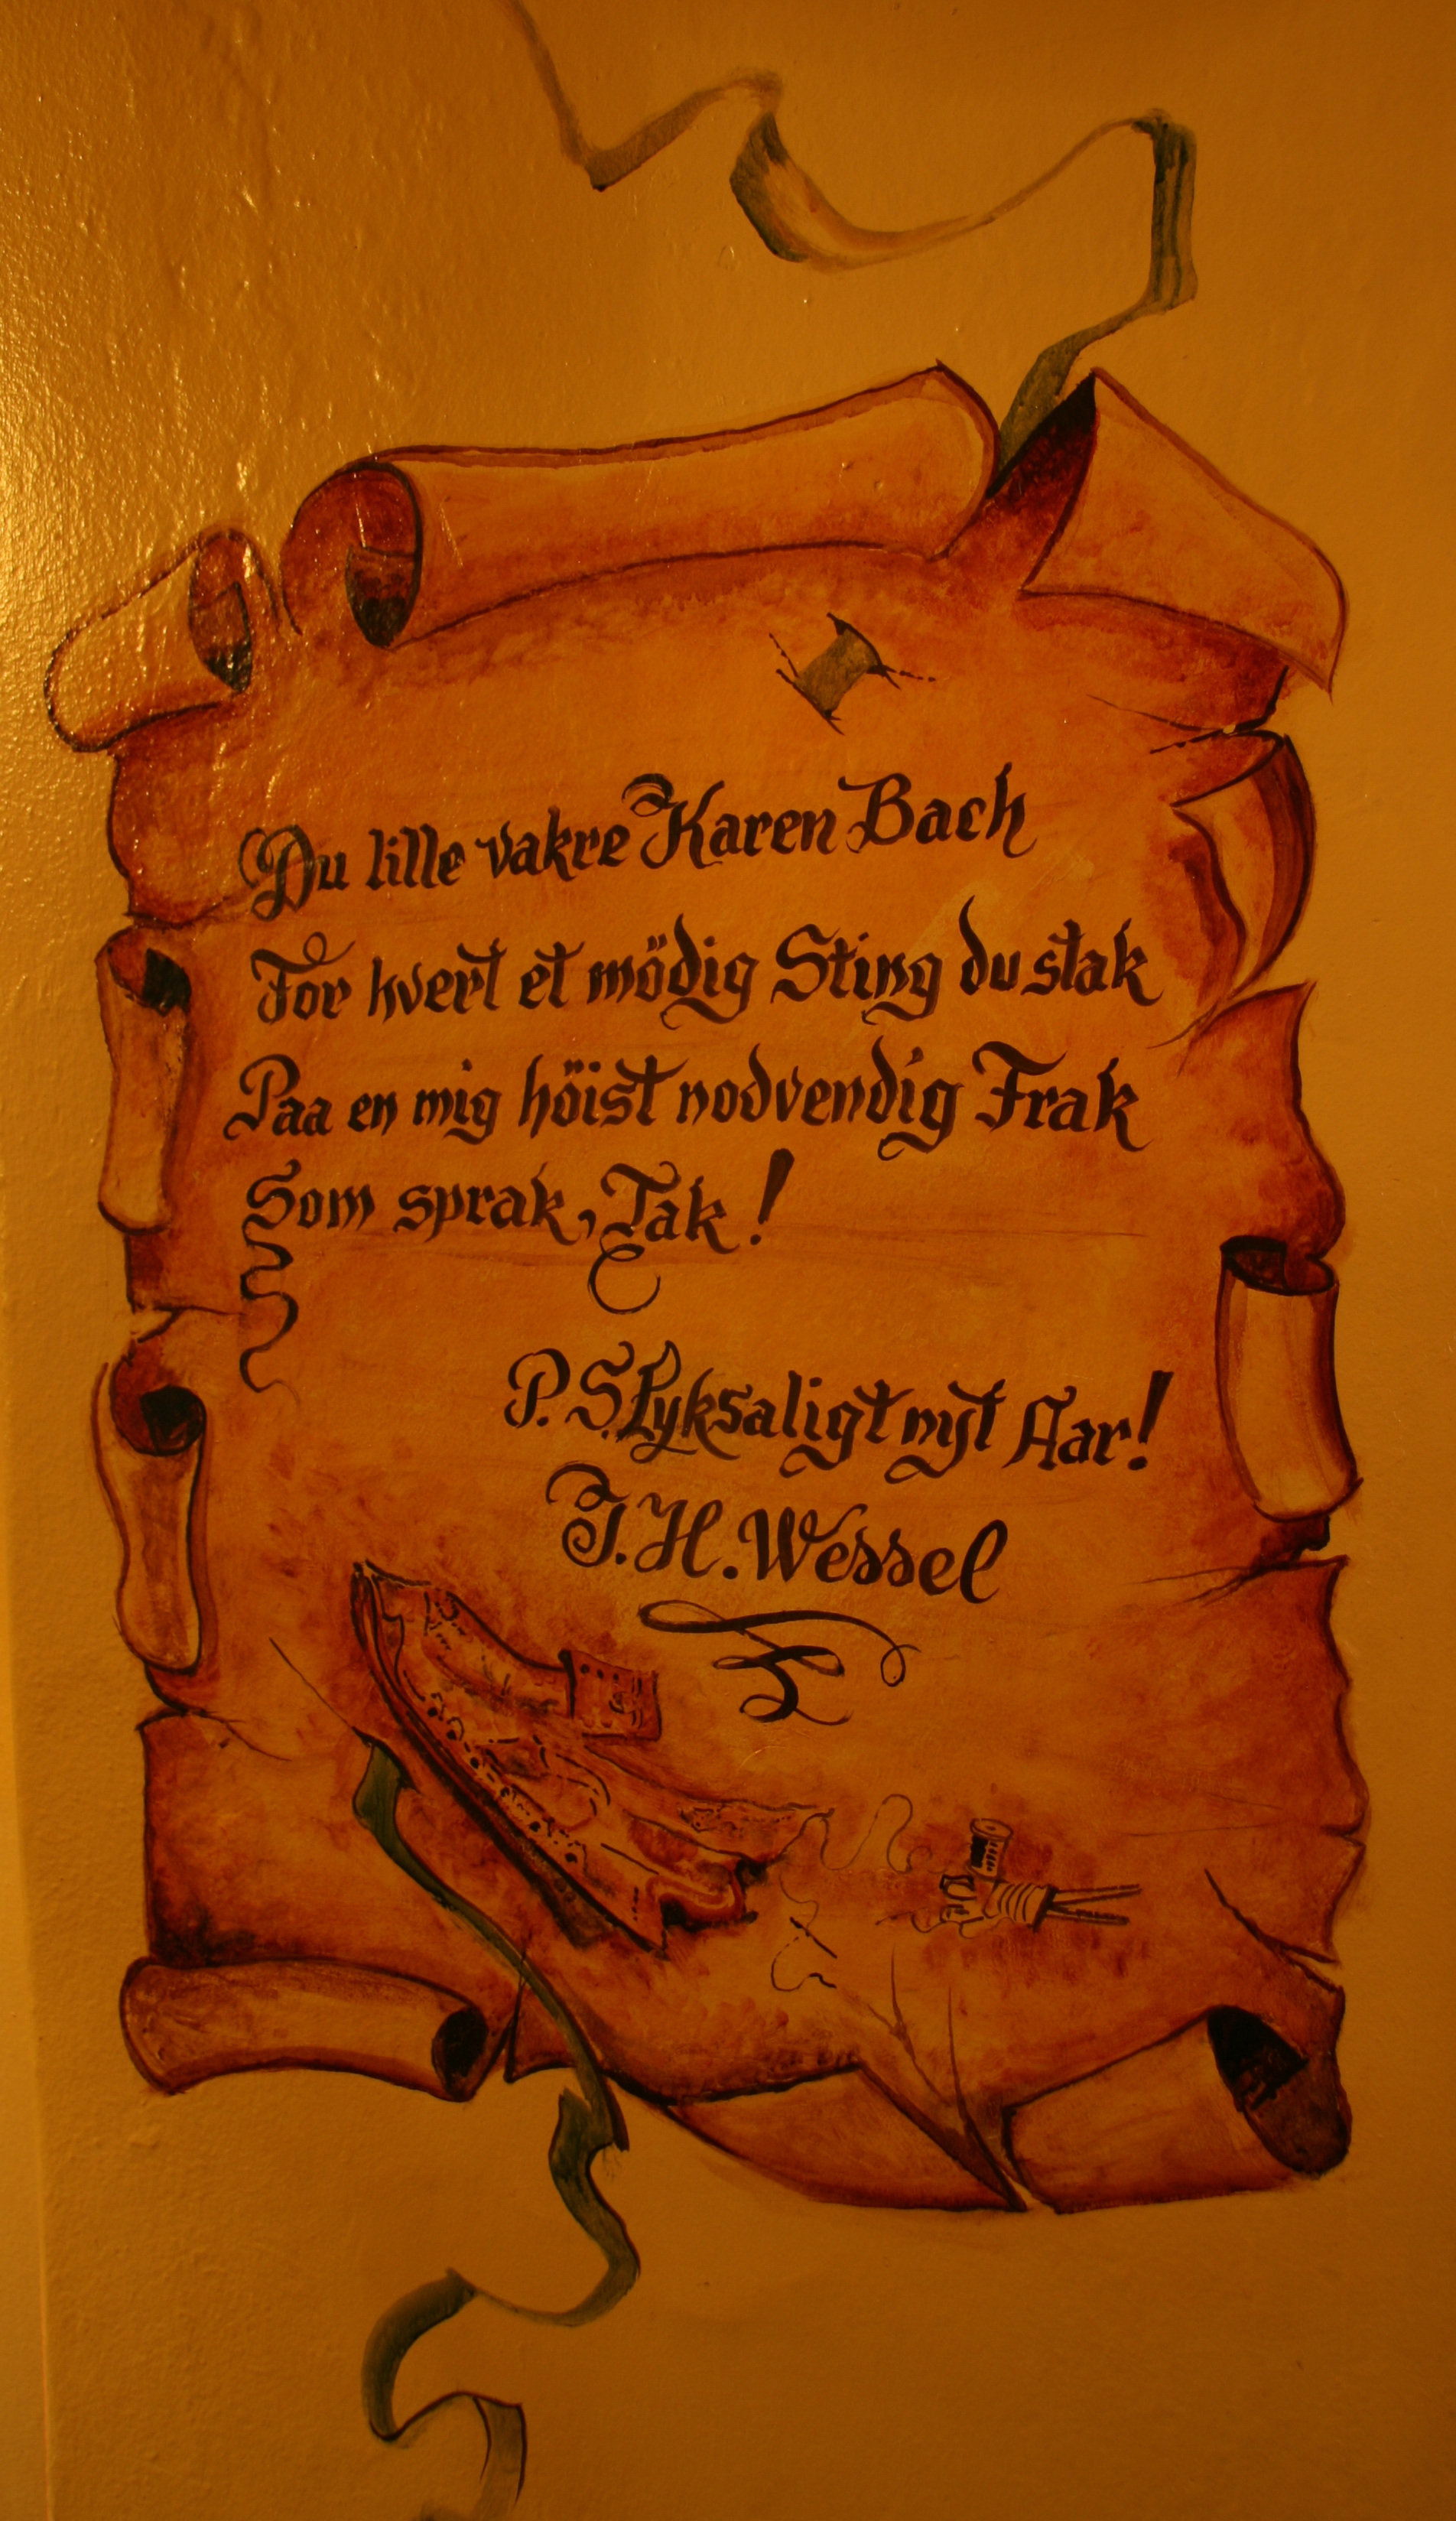 Du lille vakre Karen Bach
For hvert et mödig Sting du stak
Paa en mig höist nodvendig Frak
Som sprak, Tak!
P.S. Lyksaligt nyt Aar!
J.H.Wessel